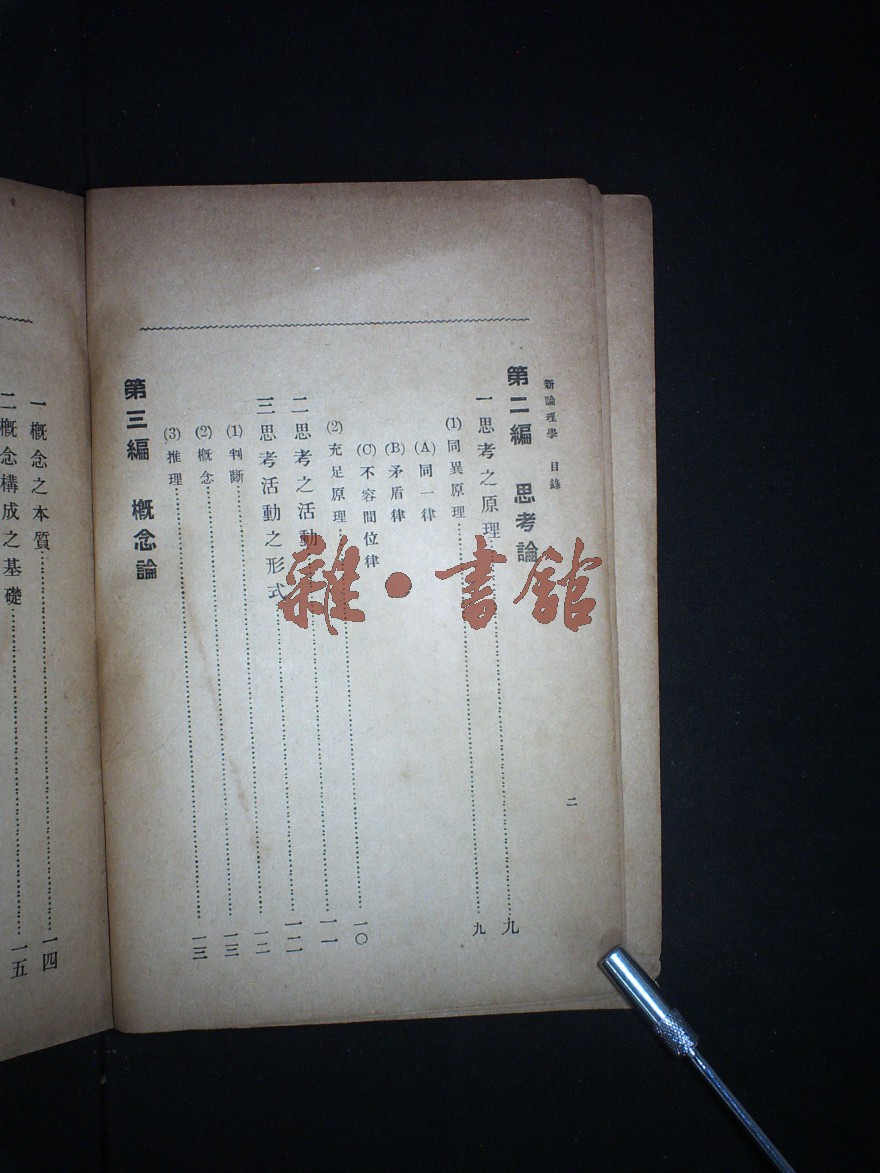 新論理學 目錄
二
第二編 思考論
一 思考之原理……九
(1) 同異原理……九
(A) 同一律
(B) 矛盾律
(C) 不容間位律
(2) 充足原理……一〇
二 思考之活動……一一
三 思考活動之形式……一二
(1) 判斷……一二
(2) 概念……一三
(3) 推理……一三
第三編 概念論
一 概念之本質……一四
二 概念構成之基礎……一五
雜·書館